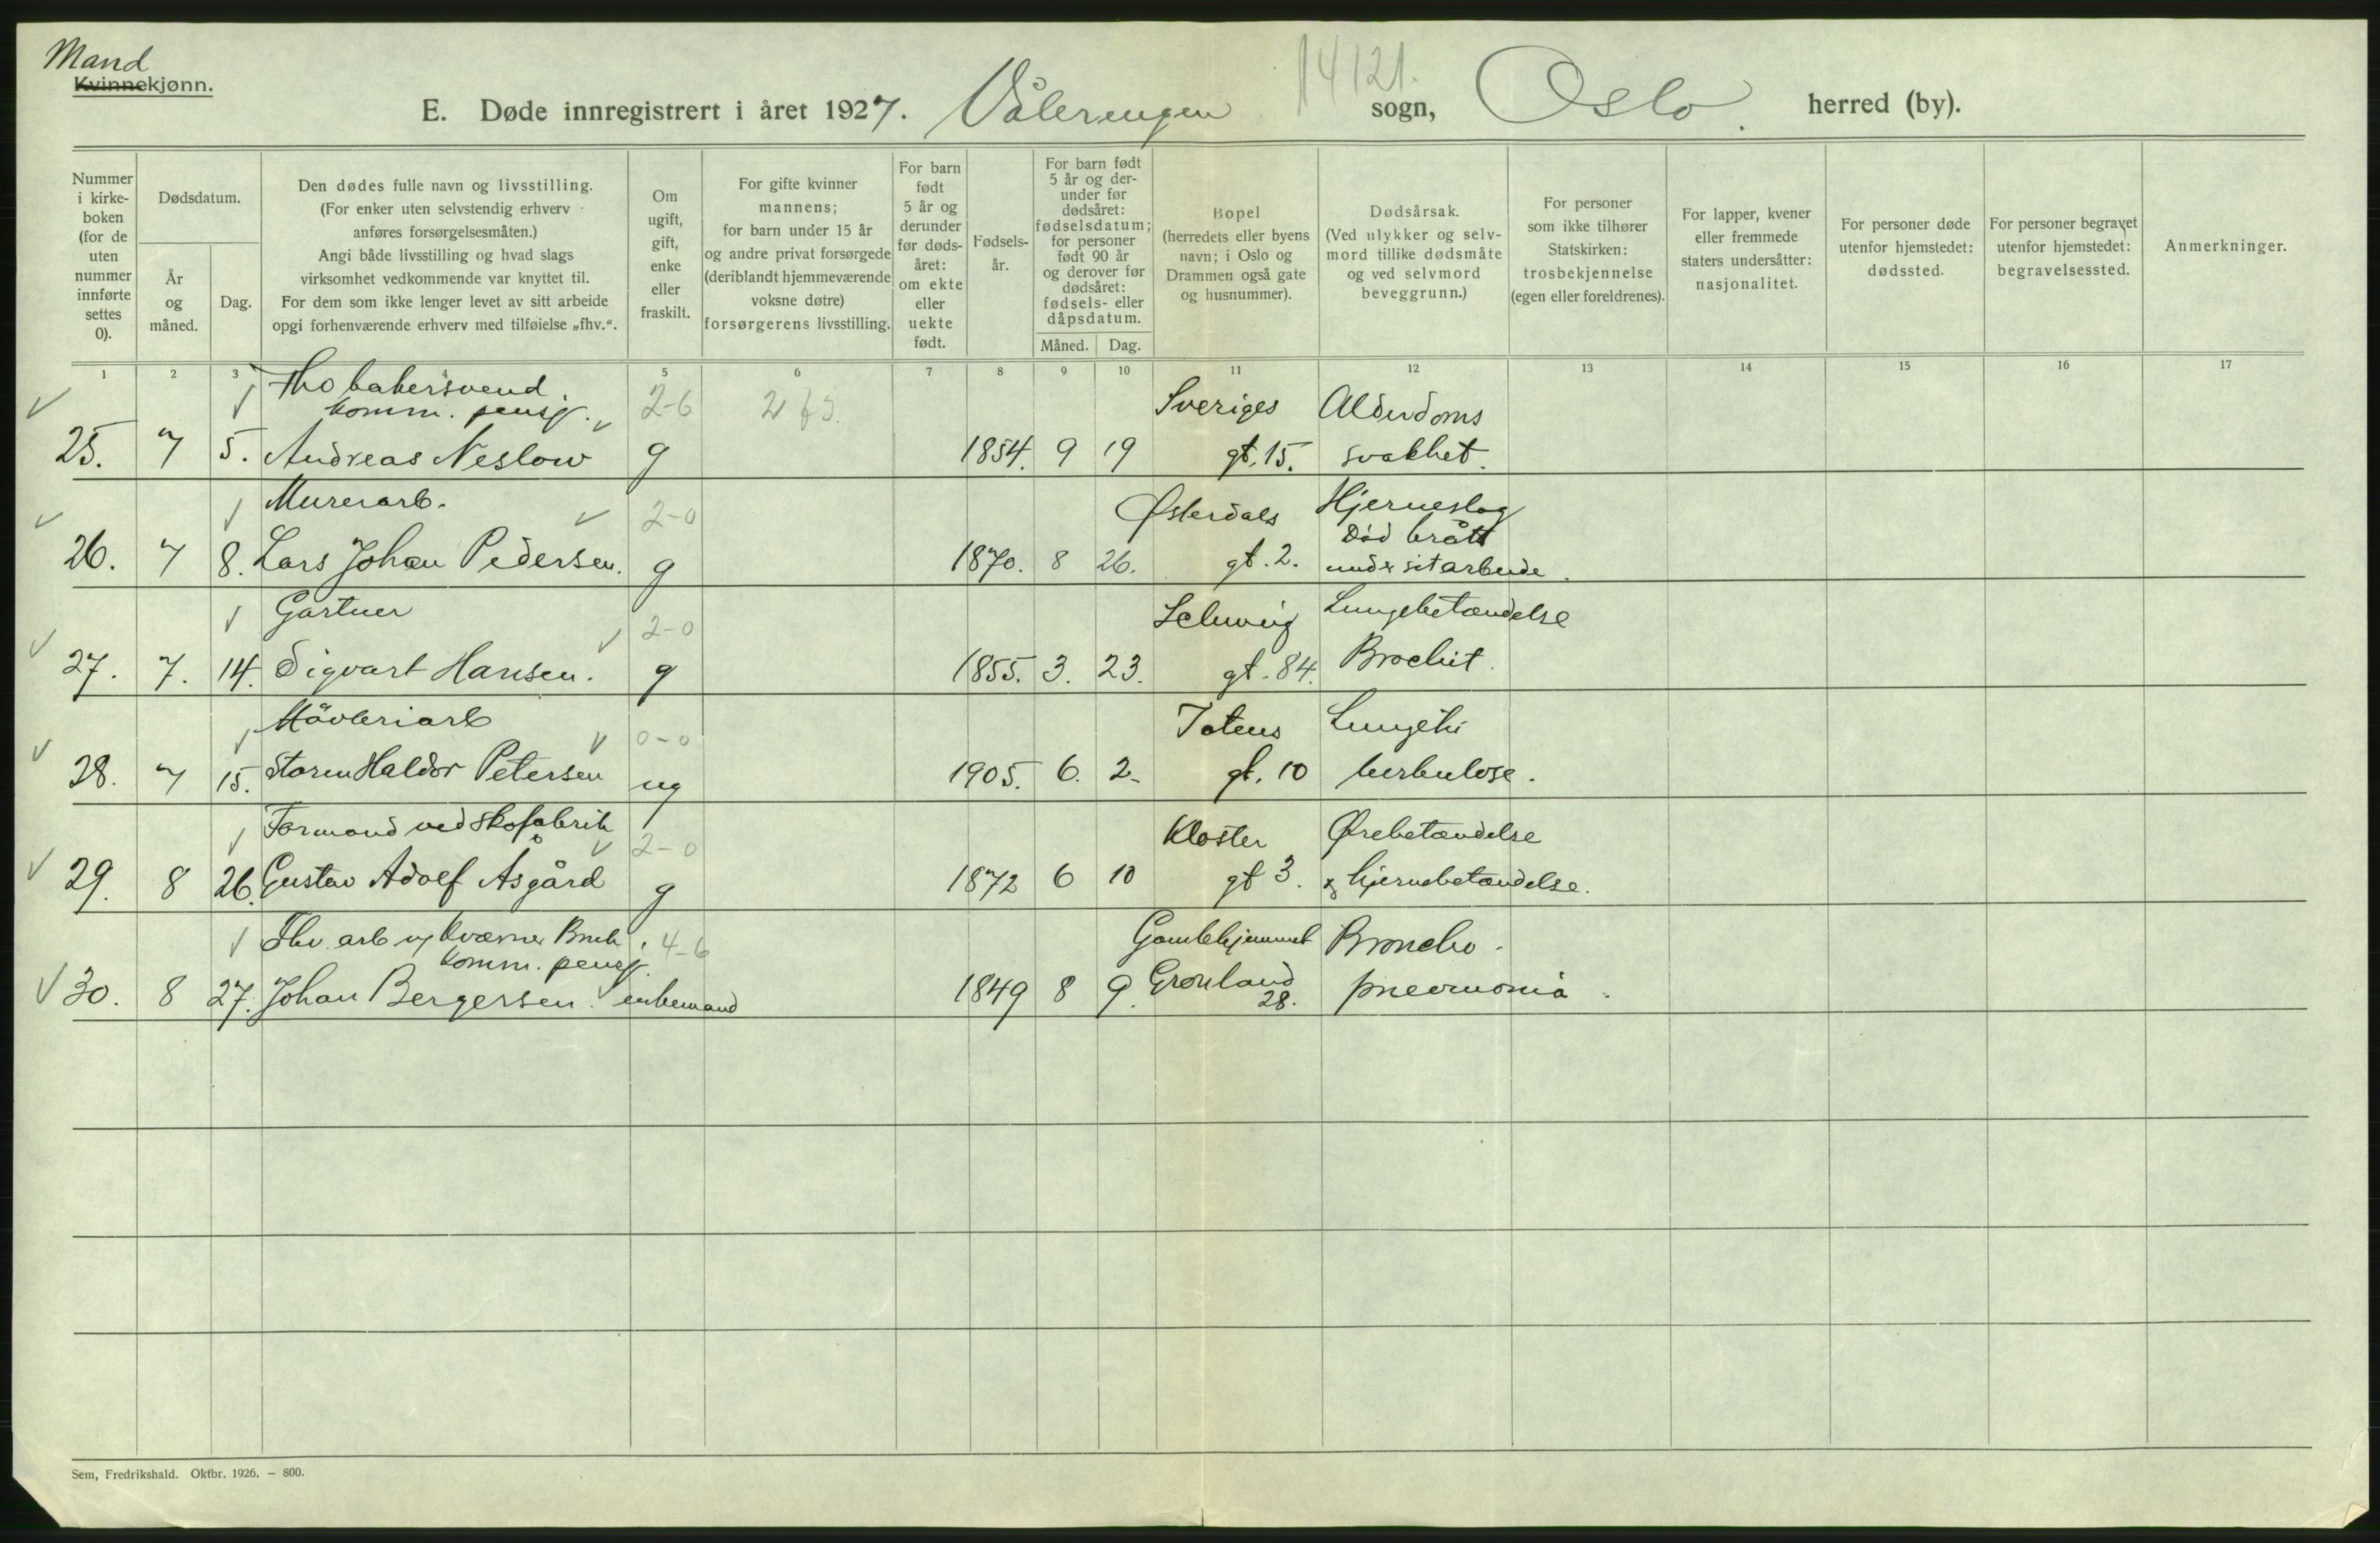 Mand
Kvinnekjønn.
14121.
E. Døde innregistrert i året 1927. Vålerengen sogn, Oslo. herred (by).
Nummer i kirkeboken (for de uten nummer innførte settes 0).
Dødsdatum.
År og måned.
Dag.
Den dødes fulle navn og livsstilling.
(For enker uten selvstendig erhverv
anføres forsørgelsesmåten.)
Angi både livsstilling og hvad slags
virksomhet vedkommende var knyttet til.
For dem som ikke lenger levet av sitt arbeide
opgi forhenværende erhverv med tilføielse „fhv.“.
Om
ugift,
gift,
enke
eller
fraskilt.
For gifte kvinner
mannens;
for barn under 15 år
og andre privat forsørgede
(deriblandt hjemmeværende
voksne døtre)
forsørgerens livsstilling.
For barn
født
5 år og
derunder
før døds-
året:
om ekte
eller
uekte
født.
Fødsels-
år.
For barn født
5 år og der-
under før
dødsåret:
fødselsdatum;
for personer
født 90 år
og derover før
dødsåret:
fødsels- eller
dåpsdatum.
Måned. Dag.
Bopel
(herredets eller byens
navn; i Oslo og
Drammen også gate
og husnummer).
Dødsårsak.
(Ved ulykker og selv-
mord tillike dødsmåte
og ved selvmord
beveggrunn.)
For personer
som ikke tilhører
Statskirken:
trosbekjennelse
(egen eller foreldrenes).
For lapper, kvener
eller fremmede
staters undersåtter:
nasjonalitet.
For personer døde
utenfor hjemstedet:
dødssted.
For personer begravet
utenfor hjemstedet:
begravelsessted.
Anmerkninger.
1 2 3 4 5 6 7 8 9 10 11 12 13 14 15 16 17
Fhv bakersvend.
komm. pensj. 2-6 Sveriges Alderdoms
25. 7 5. Andreas Neslow g 1854. 9 19 gt. 15. svakhet.
Murerarb. 2-0 Østerdals Hjerneslag
Død brått
26. 7 8. Lars Johan Pedersen. g 1870. 8 26. gt. 2. under sit arbeide.
Gartner 2-0 Schweig Lungebetændelse
27. 7. 14. Sigvart Hansen. g 1855. 3. 23. gt. 84. Brochit.
Møbleriarb 0-0 Totens Lungetu
28. 7 15. Storm Haldor Petersen ug 1905. 6. 2. gt. 10 berkulose.
Formand ved skofabrik 2-0 Kloster Ørebetændelse
29. 8 26. Gustav Adolf Åsgård g 1872 6 10 gt 3. & hjernebetændelse.
Fhv. arb v/ Kværner Bruk. 4-6 Gamlehjemmet Broncho-
komm. pensj.
30. 8 27. Johan Bergersen. enkemand 1849 8 9. Grønland 28. pneumonia.
Sem, Fredrikshald. Oktbr. 1926. — 800.